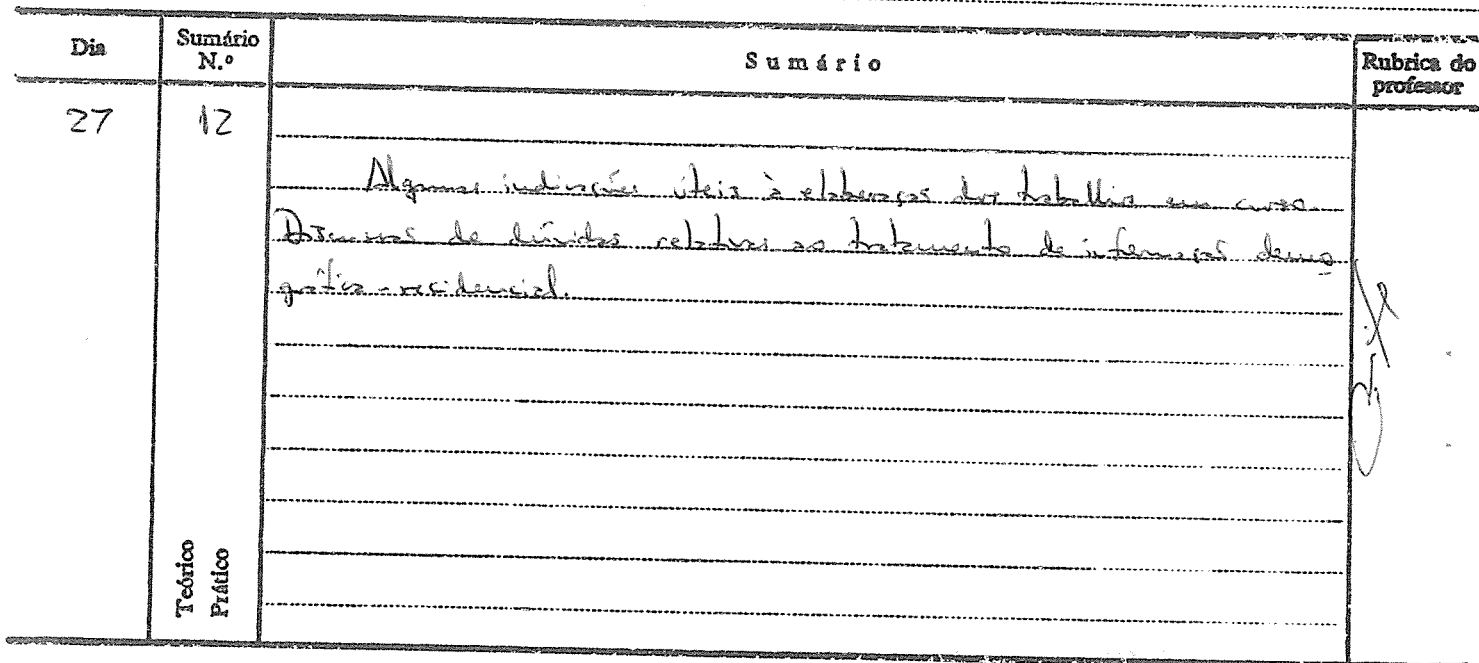 Dia
Sumário N.º
Sumário
Rubrica do professor
27
12
Algumas indicações úteis à elaboração dos trabalhos em curso.
Discussão de dúvidas relativas ao tratamento de informação demo
gráfica-residencial.
Teórico
Prático